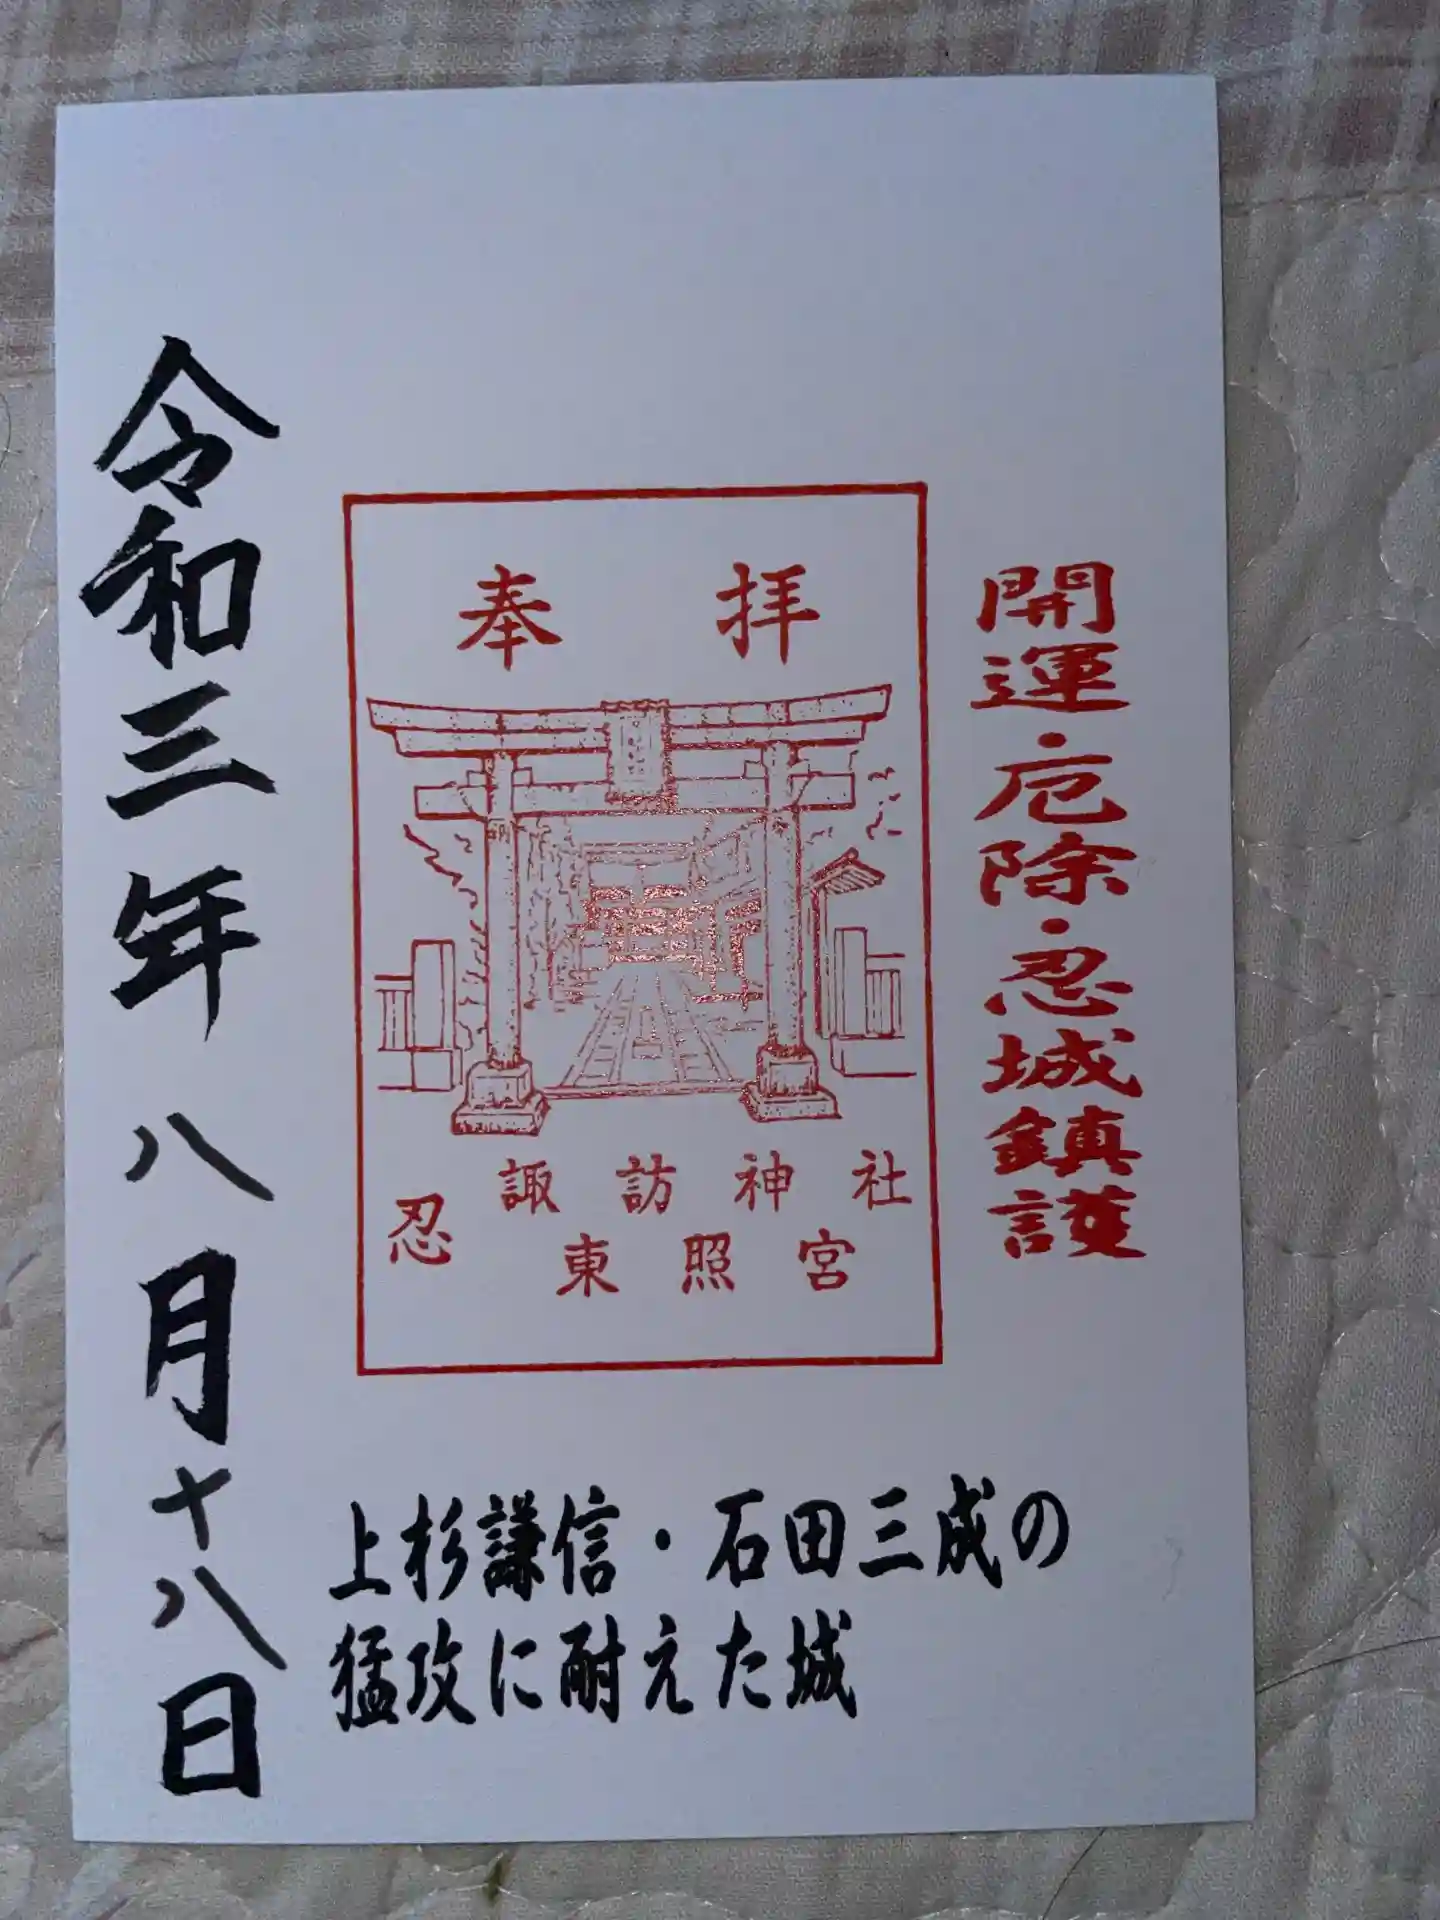 開運・厄除・忍城鎮護
奉拝
諏訪神社
忍
東照宮
上杉謙信・石田三成の
猛攻に耐えた城
令和三年八月十八日